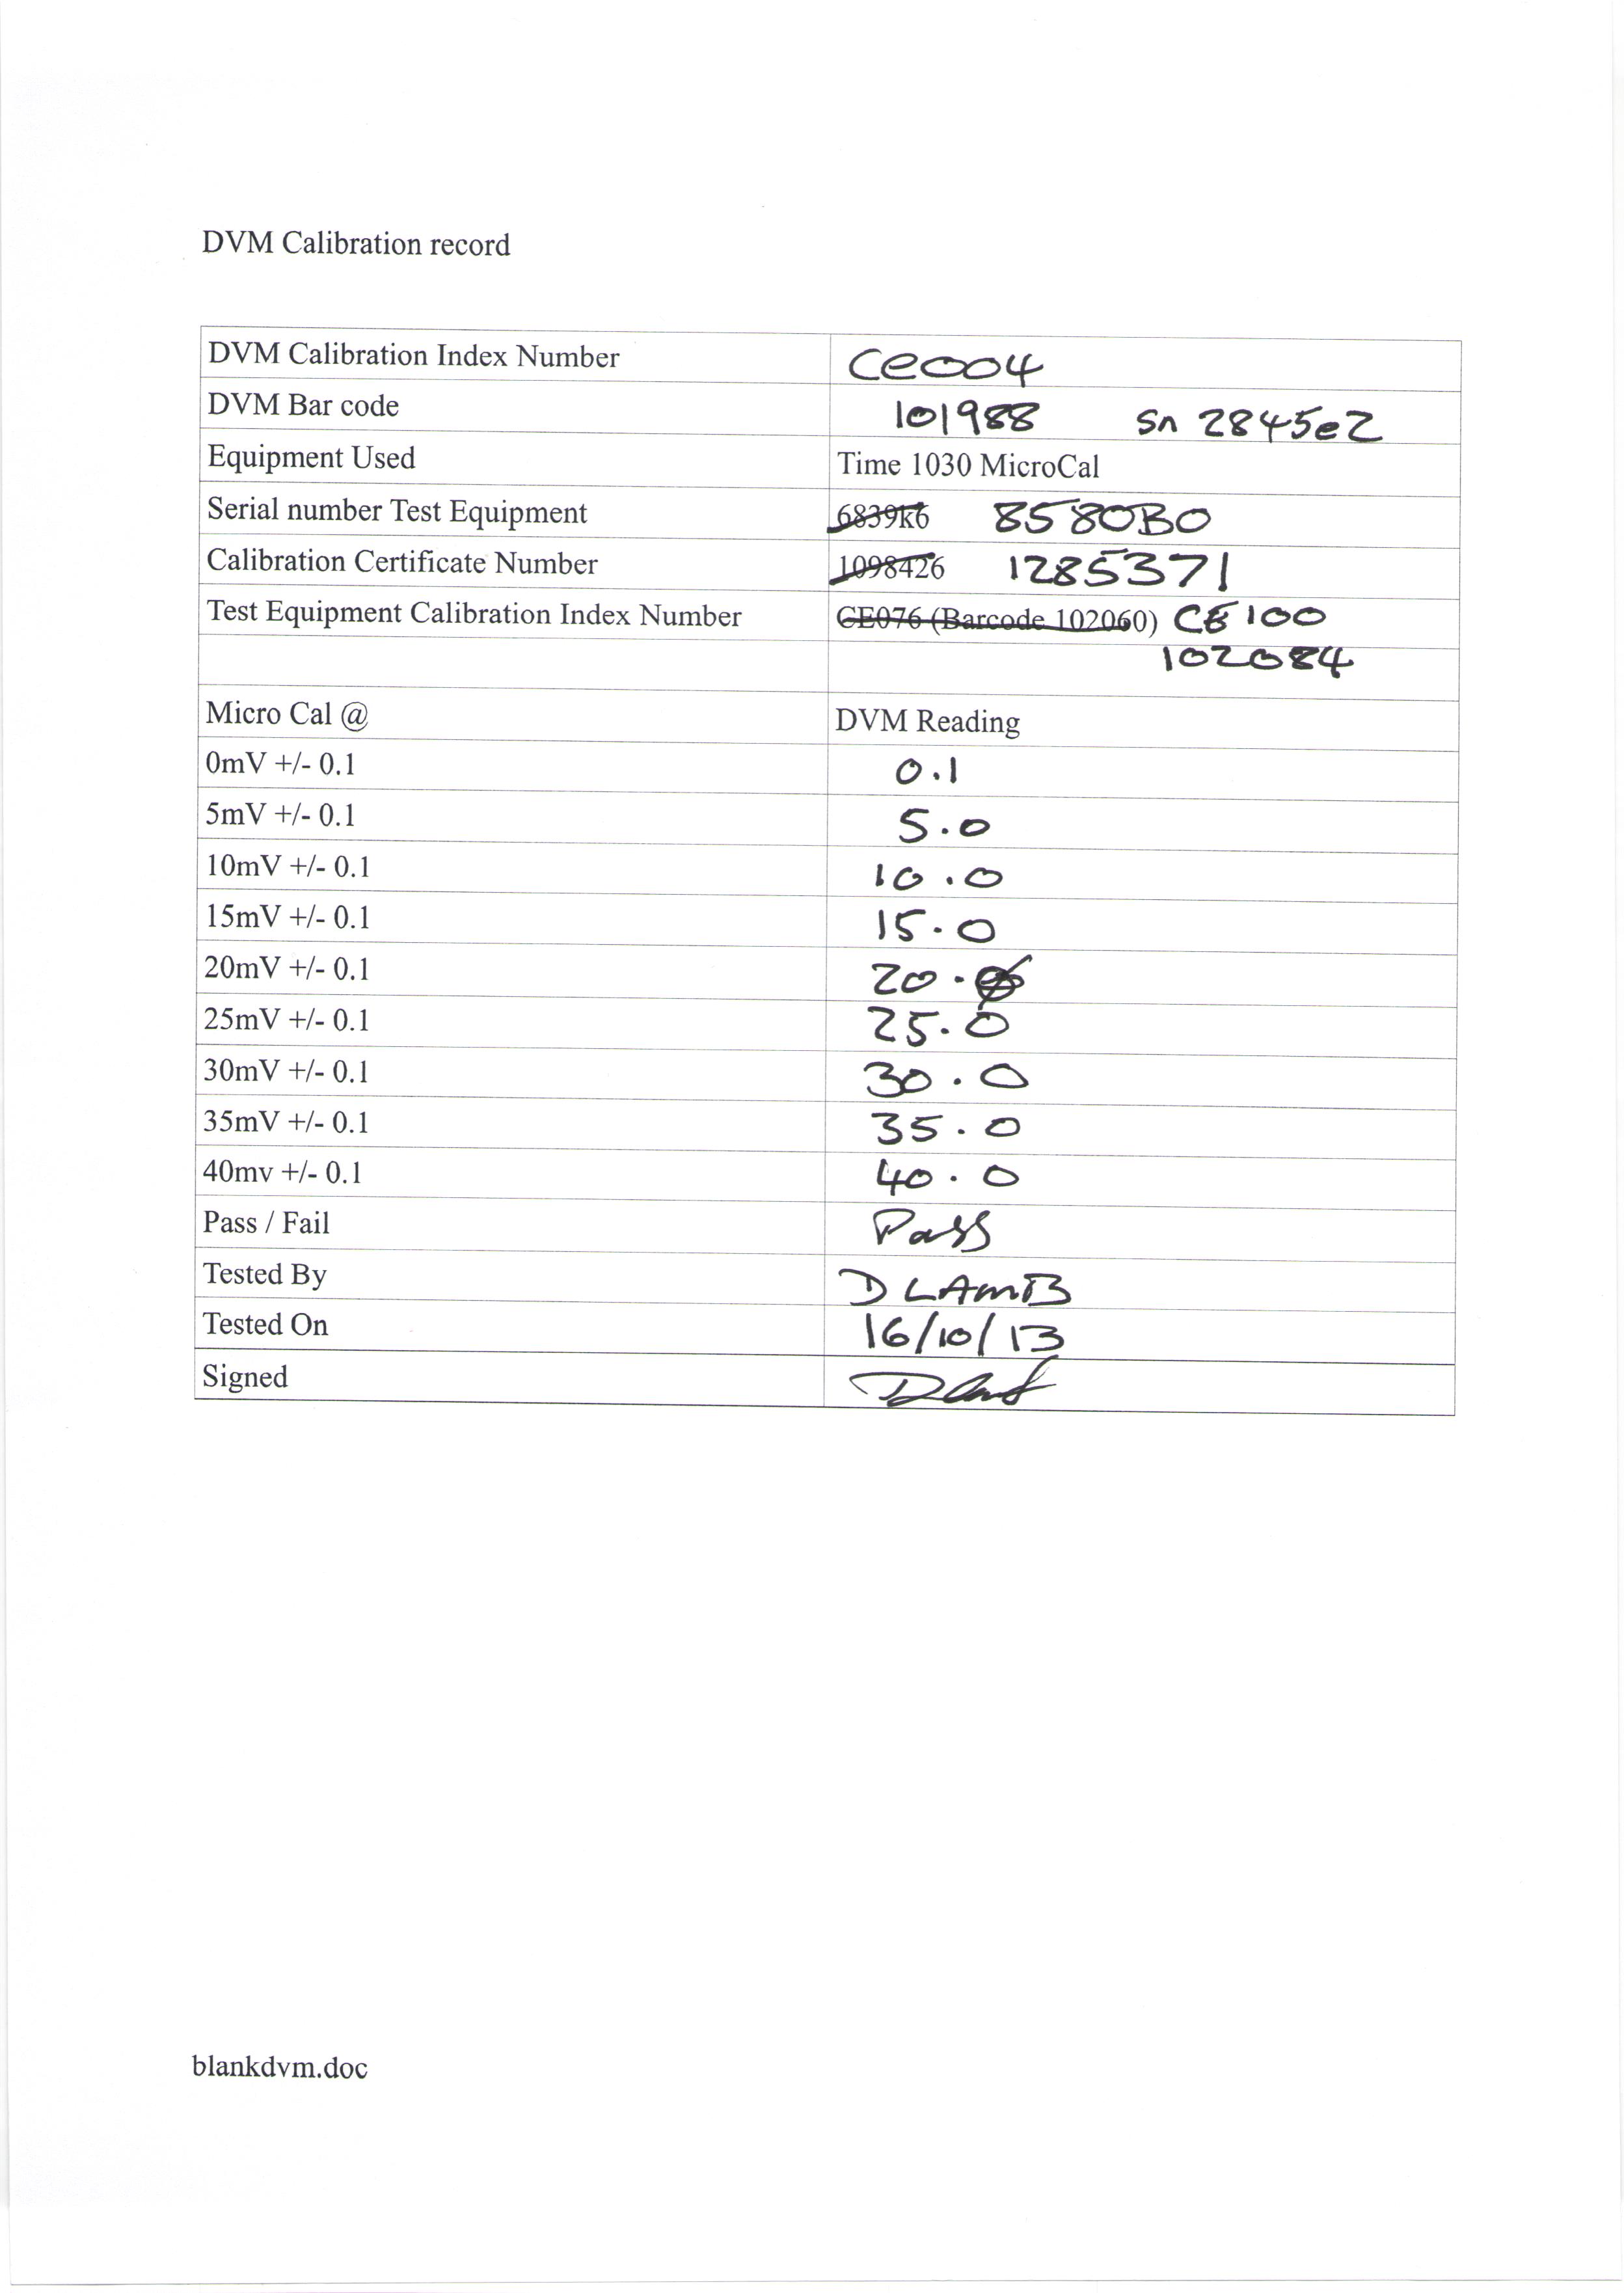 DVM Calibration record
DVM Calibration Index Number CE004
DVM Bar code 101988 Sn 2845e2
Equipment Used Time 1030 MicroCal
Serial number Test Equipment 6839k6 8580B0
Calibration Certificate Number 1098426 1285371
Test Equipment Calibration Index Number CE076 (Barcode 102060) CE100
102084
Micro Cal @ DVM Reading
0mV +/- 0.1 0.1
5mV +/- 0.1 5.0
10mV +/- 0.1 10.0
15mV +/- 0.1 15.0
20mV +/- 0.1 20.
25mV +/- 0.1 25.0
30mV +/- 0.1 30.0
35mV +/- 0.1 35.0
40mv +/- 0.1 40.0
Pass / Fail Pass
Tested By D LAMB
Tested On 16/10/13
Signed
blankdvm.doc